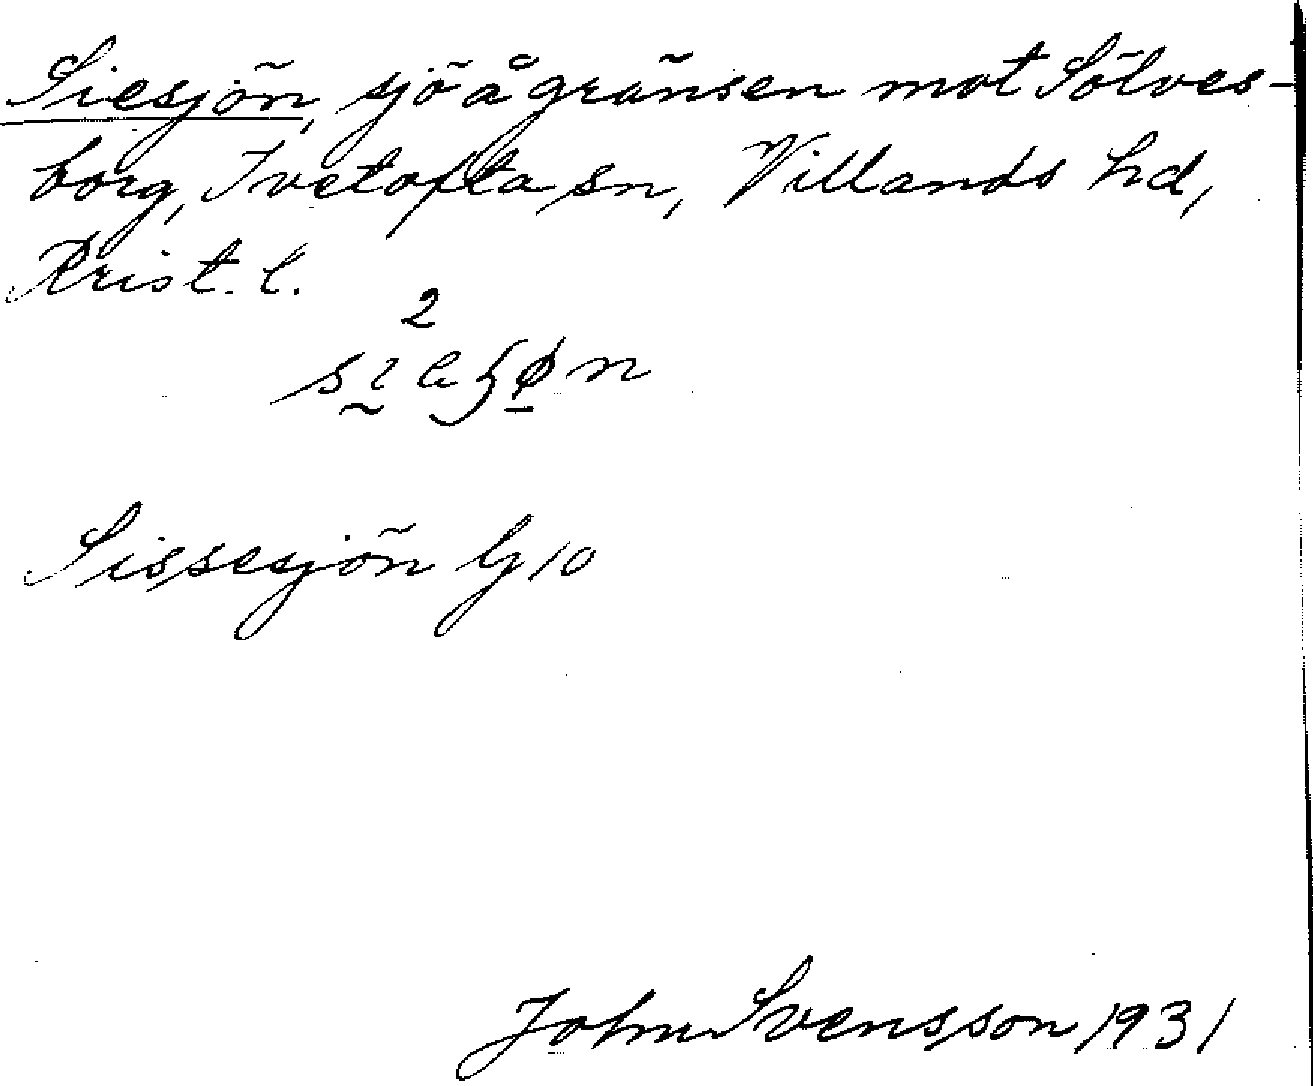 Siesjön, sjö å gränsen mot Sölves-
borg, Ivetofta sn, Villands hd,
Krist. l.
2
Sissesjön G 10
John Svensson 1931